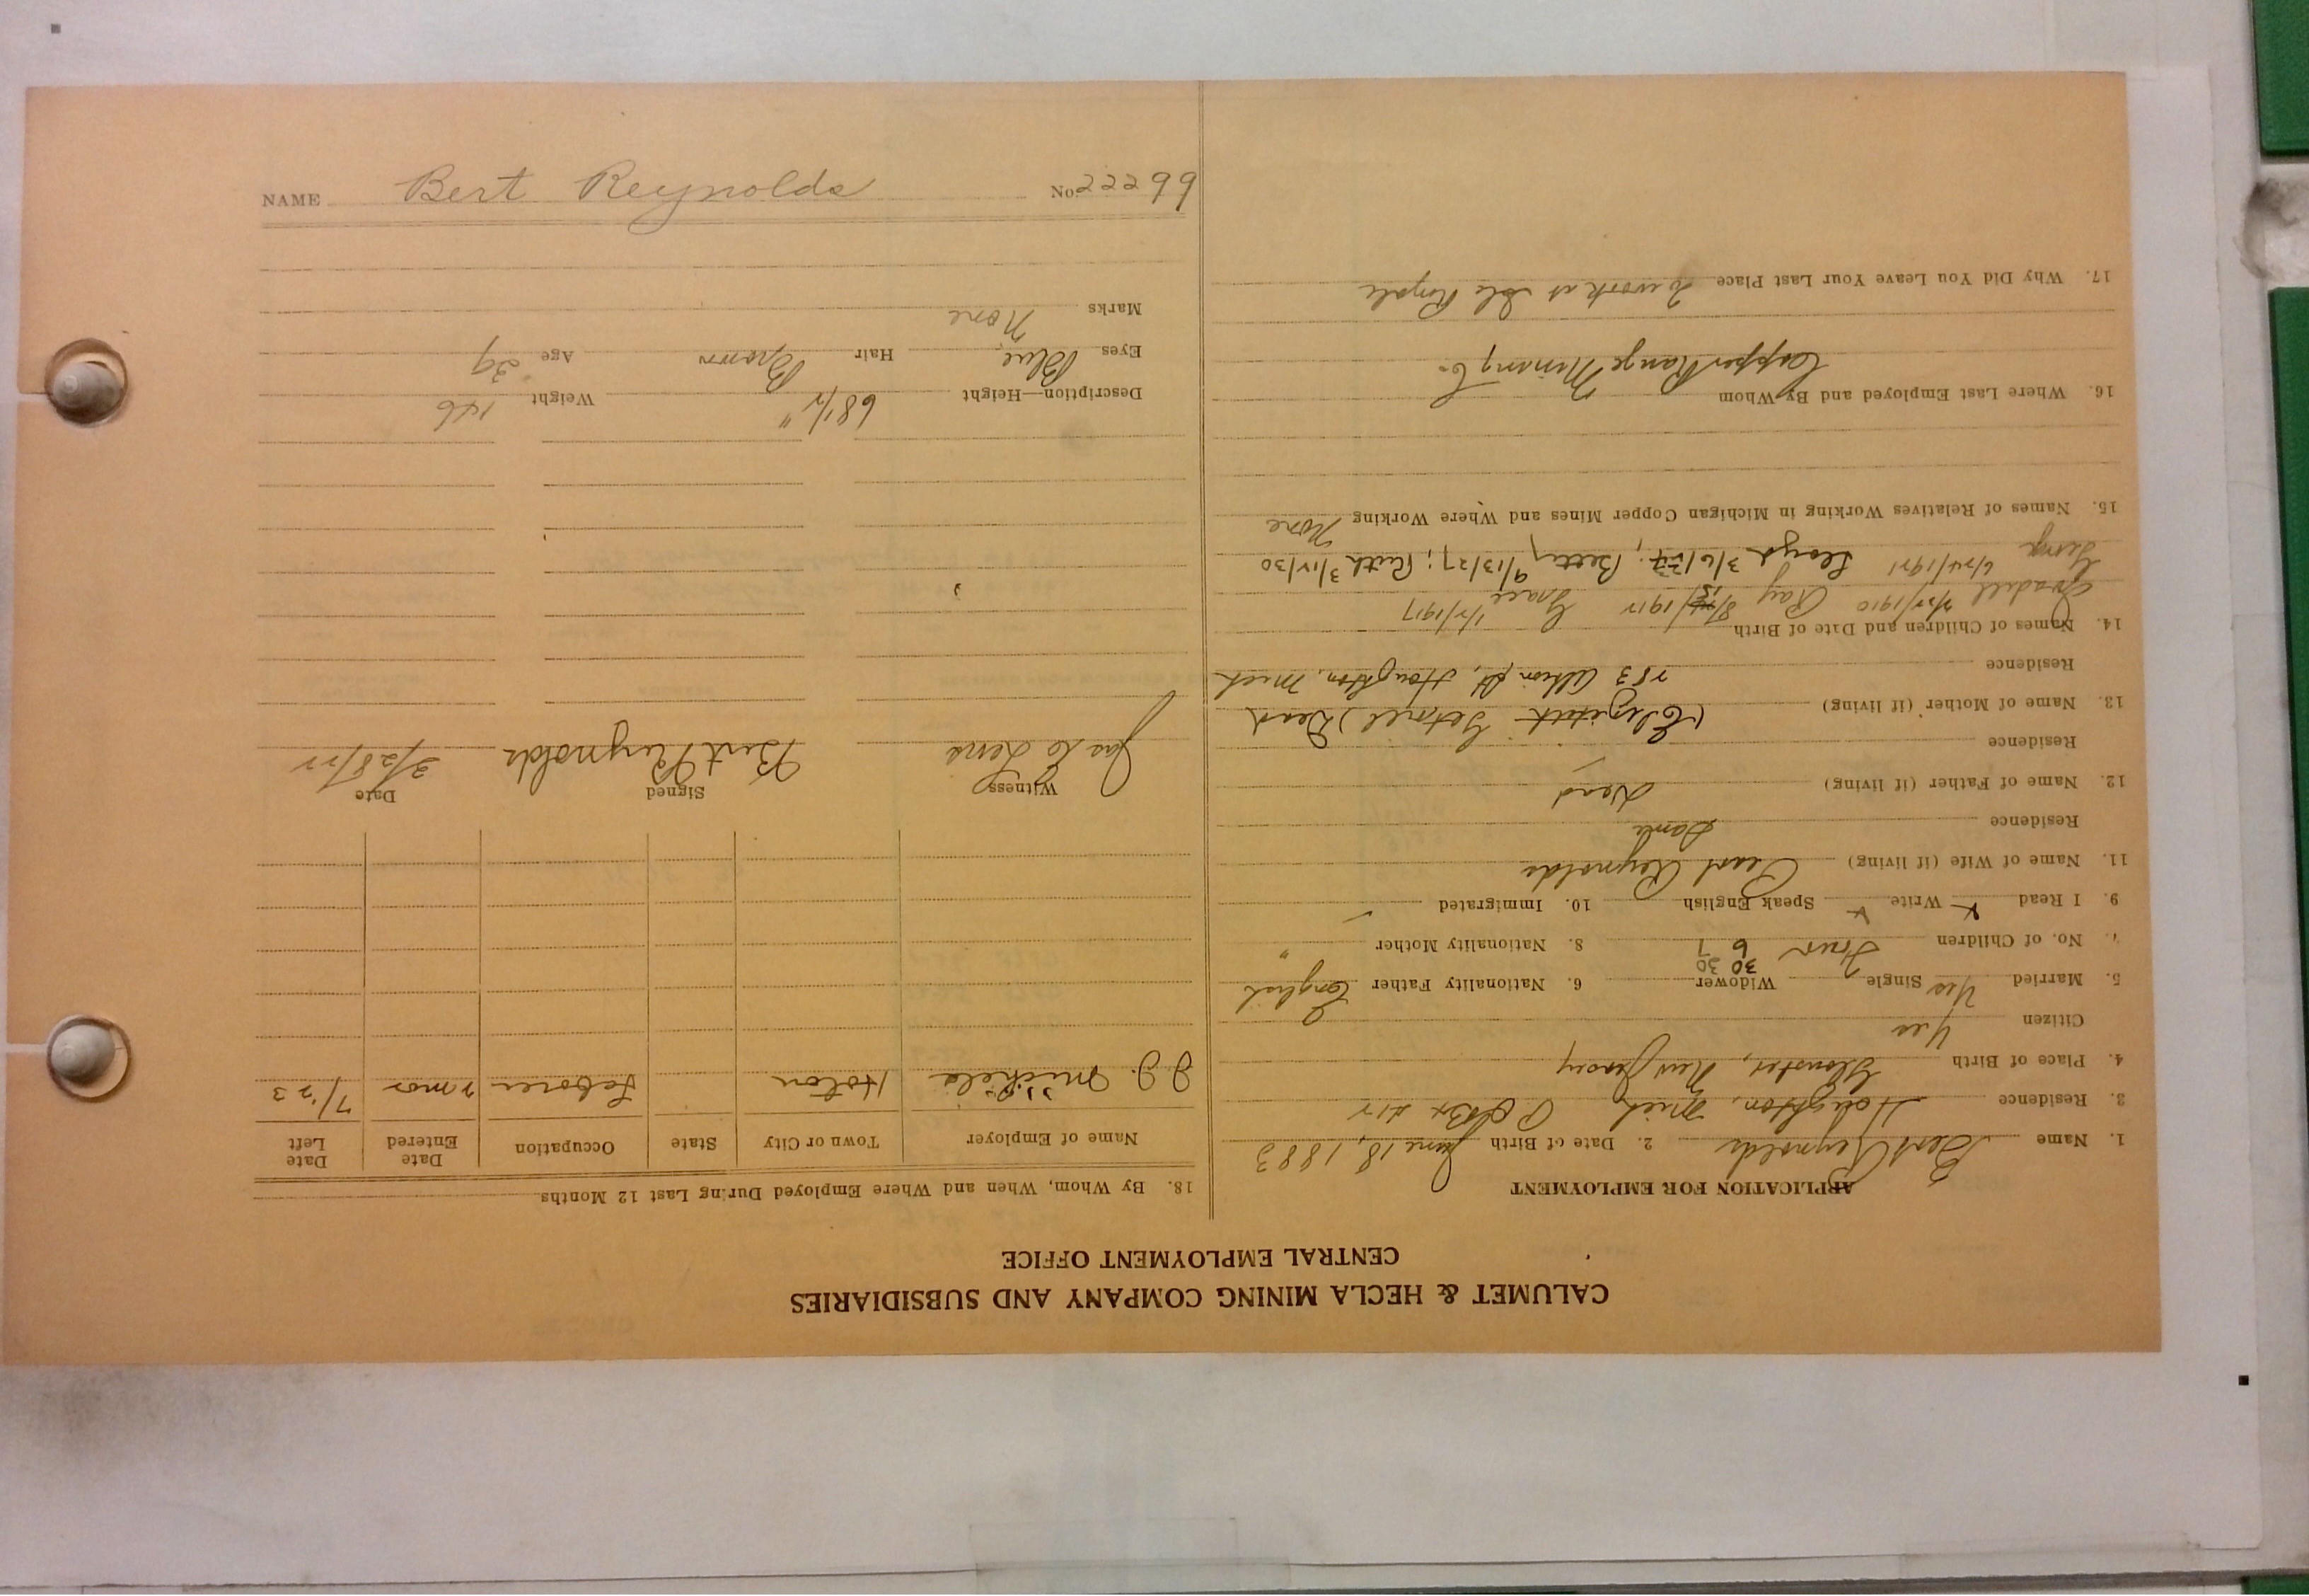 CALUMET & HECLA MINING COMPANY AND SUBSIDIARIES
CENTRAL EMPLOYMENT OFFICE
APPLICATION FOR EMPLOYMENT
1. Name Bert Reynolds 2. Date of Birth June 18, 1883
3. Residence Houghton, Mich P.O. Box
4. Place of Birth Gloucester, New Jersey
Citizen Yes
5. Married Yes Single Widower 6. Nationality Father English
30 30
7. No. of Children Four 6 7 8. Nationality Mother "
9. I Read x Write x Speak English 10. Immigrated
11. Name of Wife (if living) Pearl Reynolds
Residence Same
12. Name of Father (if living) Dead
Residence
13. Name of Mother (if living) (Elizabeth ) Dead
Residence 783 St, Houghton, Mich
14. Names of Children and Date of Birth
1910 Ray 1912 Grace 1/2/1917
George 6/24/1921 Lloyd 3/6/24; Betty 9/13/27; Ruth 3/12/30
15. Names of Relatives Working in Michigan Copper Mines and Where Working None
16. Where Last Employed and By Whom
Copper Range Mining Co.
17. Why Did You Leave Your Last Place To work at Isle Royale
18. By Whom, When and Where Employed During Last 12 Months
Name of Employer Town or City State Occupation Date Entered Date Left
J. J. Michels Laborer 2 mos
Witness Signed Date
Bert Reynolds
Description—Height 68 1/2" Weight 146
Eyes Blue Hair Brown Age 39
Marks None
NAME Bert Reynolds No. 22299